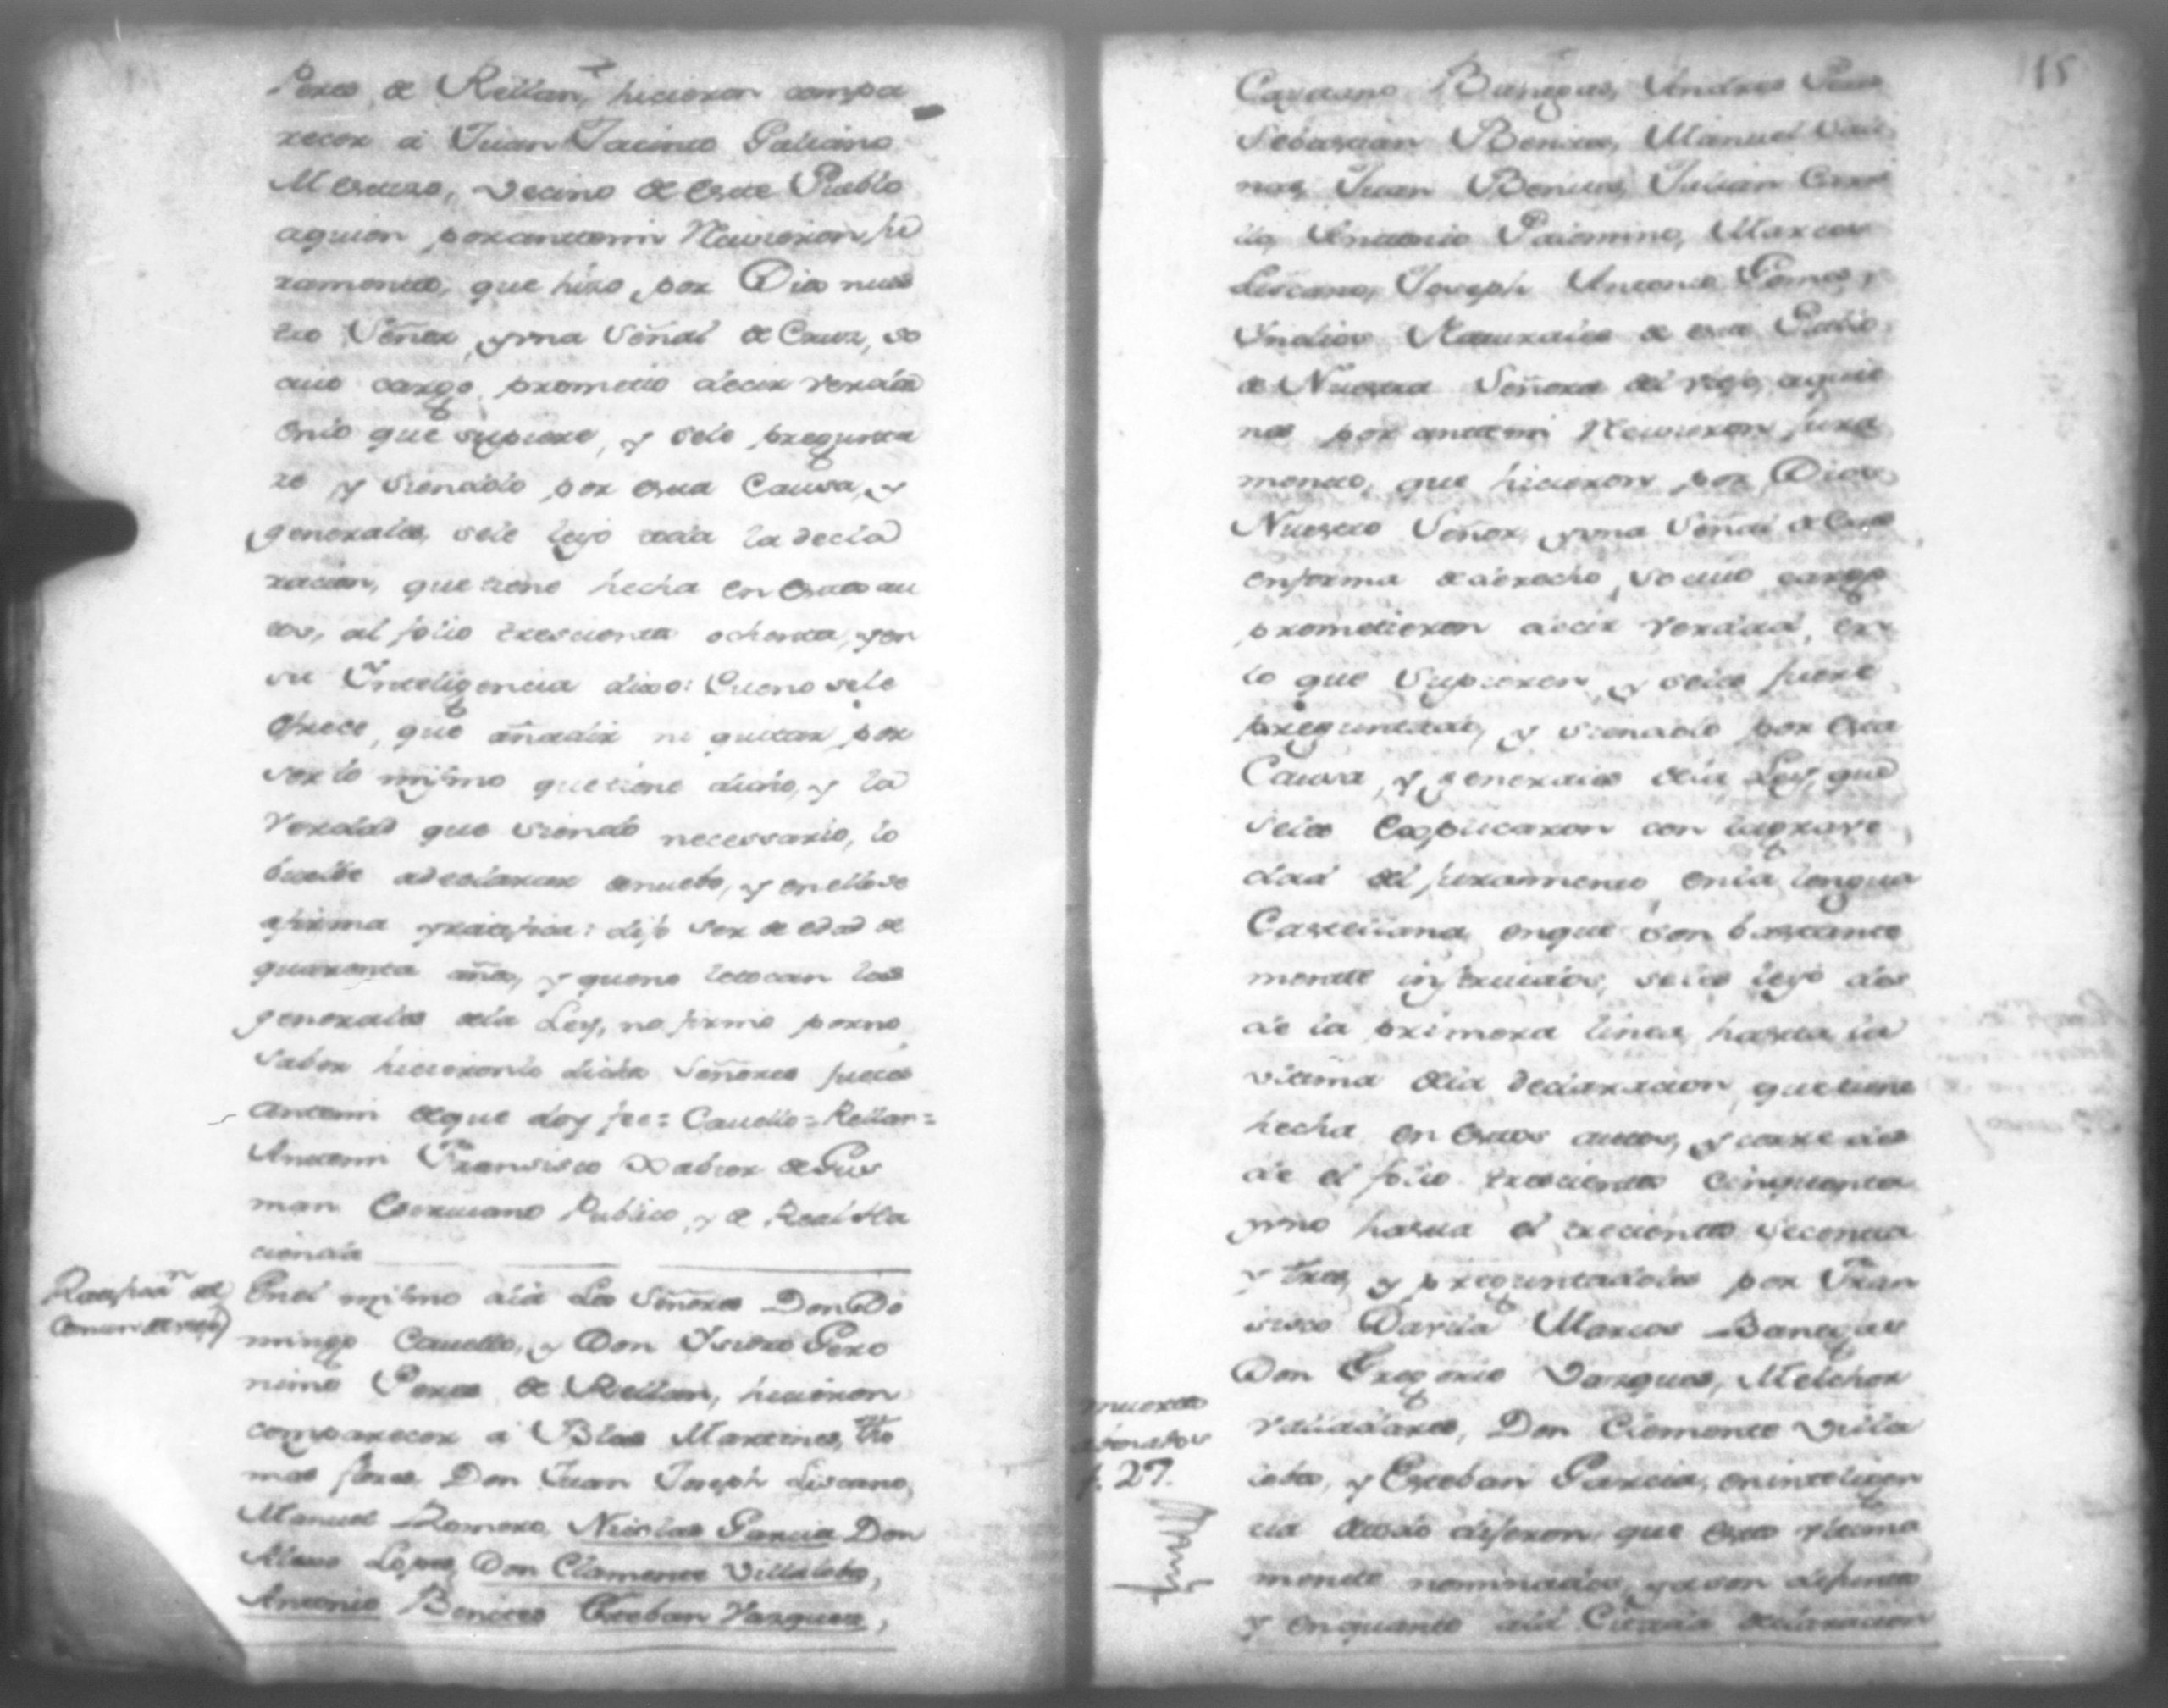 Peres de Rellan, hicieron compa
recer á Juan Jacinto Galiano
Mestizo, vecino de este Pueblo
aquien porantemi Recivieron ju
ramento, que hizo por Dios nues
tro Señor, yvna Señal de Cruz, so
cuio cargo prometio decir verdad
enlo que supiere, y sele pregunta
re y siendolo por esta Causa, y
generales, sele leyo toda la decla
racion, que tiene hecha en estos au
tos, al folio trescientos ochenta, yen
su Inteligencia dixo: Queno sele
ofrece, que añadir ni quitar por
ser lo mismo quetiene dicho, y la
Verdad que siendo necessario, lo
buelbe adeclarar denuebo, y enellose
afirma yratifica: dijo ser de edad de
quarenta años, y queno letocan las
generales dela Ley, no firmó porno
saber hicieronlo dichos Señores Jueces
antemi deque doy fee= Cauello=Rellan=
Antemi Francisco Xabier de Gus
man Escriuano Publico, y de Real Ha
cienda
Ratificaⁿ del
Comun de
Enel mismo dia Los Señores Don Do
mingo Cauello, y Don Ysidro Gero
nimo Peres de Rellan, hicieron
comparecer á Blas Martines, Tho
mas flores Don Juan Joseph Liscano,
Manuel Romero, Nicolas Garcia Don
Lopes, Don Clemente Villalobos,
Antonio Benites Esteban Vasquez,
115
Cayetano Banegas, Andres
Sebastian Benites, Manuel Sali
nas, Juan Benites, Julian
Antonio Palomino, Marcos
Liscano, Joseph Antonio Gomes, y
Yndios Naturales de este Pueblo
de Nuestra Señora del viejo, aquie
nes por antemi Recivieron jura
mento, que hicieron por Dios
Nuestro Señor, yvna Señal de Cruz
enforma dederecho, so cuio cargo
prometieron decir Verdad, en
lo que Supieren, y seles fuere
preguntado, y siendolo por esta
Causa, y generales dela Ley, que
seles explicaron con lagrave
dad del juramento, enla lengua
Castellana enque son bastante
mente instruidos, seles leyó des
de la primera linea, hasta la
vltima dela declaracion, quetiene
hecha en estos autos, y corre des
de el folio trescientos cinquenta
yvno hasta el trecientos secenta
y tres, y preguntadoles por Fran
sisco Davila Marcos Banegas
Don Gregorio Vasques, Melchor
Valladares, Don Clemente Villa
lobos, y Esteban Garcia, eninteligen
cia detodo dijeron: que estos vltima
mente nominados, yason difuntos
y enquanto alá Citada declaracion
muertos
f. 27.